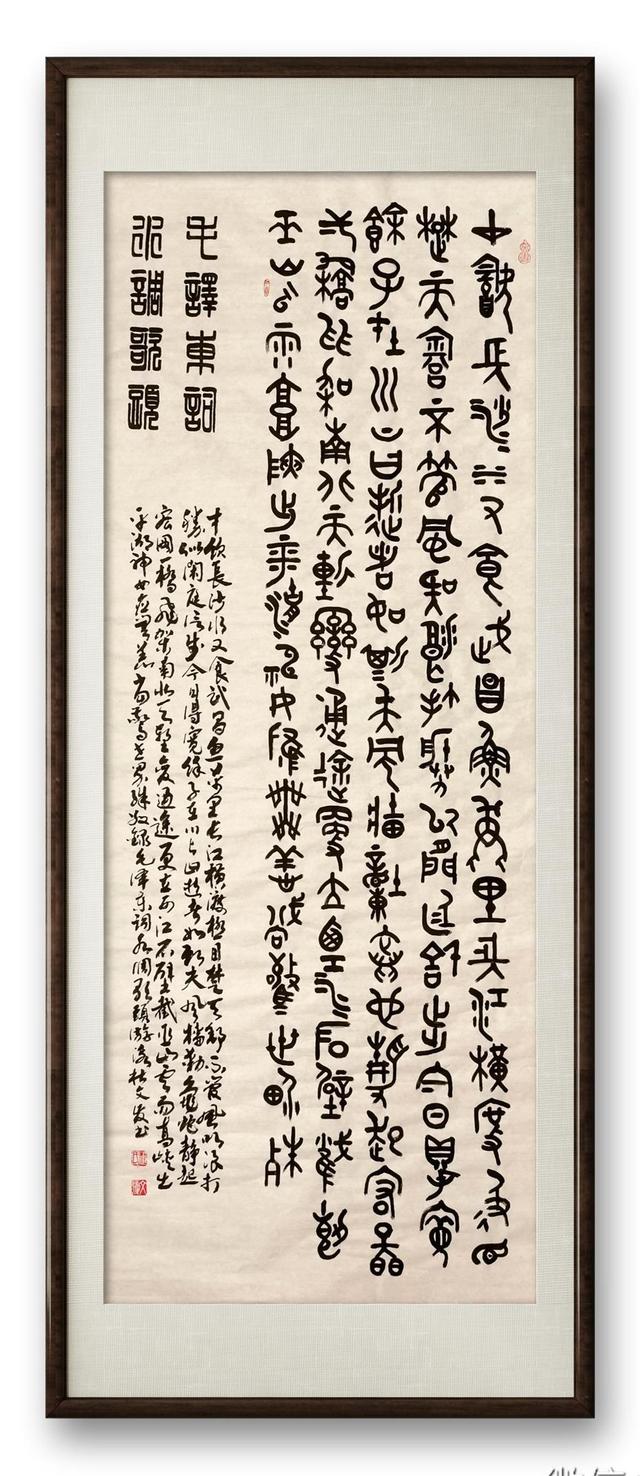 才飲長沙水又食武昌魚萬里長江橫度極目
楚天舒不管風吹浪打勝似閒庭信步今日得寬
餘子在川上曰逝者如斯夫風檣動龜蛇靜起宏圖
一橋飛架南北天塹變通途更立西江石壁截斷
巫山雲雨高峽出平湖神女應無恙當驚世界殊
毛澤東詞
水調歌頭
才飲長沙水又食武昌魚萬里長江橫渡極目楚天舒不管風吹浪打
勝似閑庭信步今日得寬餘子在川上曰逝者如斯夫風檣動龜蛇靜起
宏圖一橋飛架南北天塹變通途更立西江石壁截斷巫山雲雨高峽出
平湖神女應無恙當驚世界殊敬錄毛澤東詞水調歌頭游泳文發書